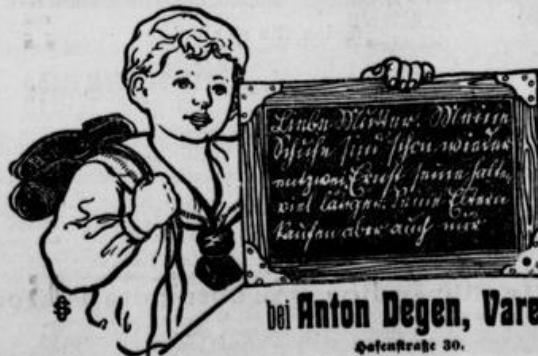 Liebe Mutter! Meine
Schuhe sind schon wieder
entzwei, Ernst seine halten
viel länger. Seine Eltern
kaufen aber auch nur
bei Anton Degen, Vare
Hafenstraße 30.